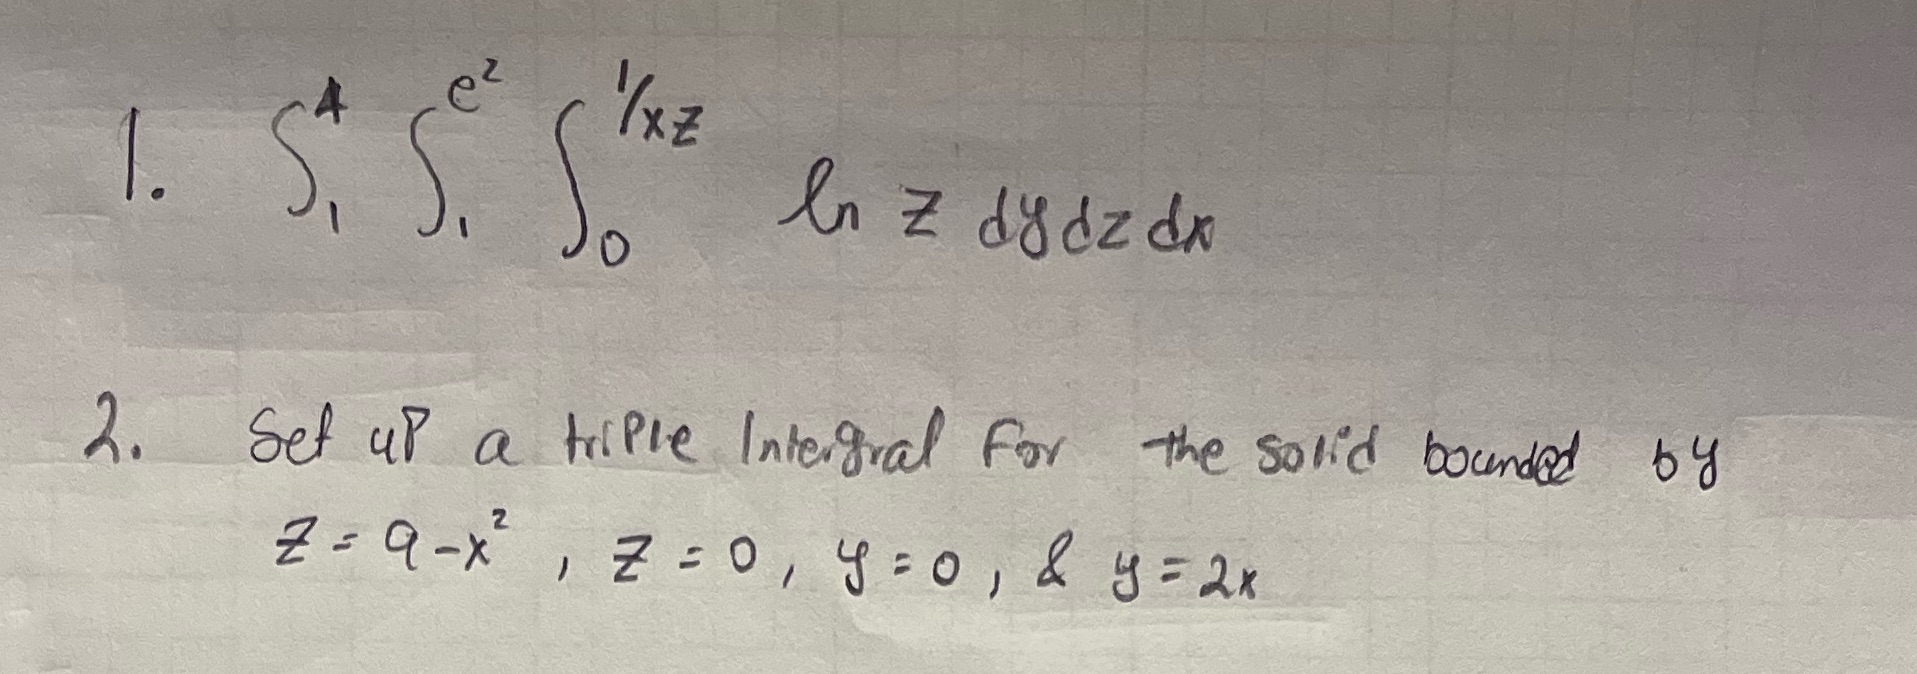 1. ∫₁⁴ ∫₁^e² ∫₀^1/xz ln z dy dz dx
2. Set up a triple Intergral For the solid bounded by
z = 9-x², z = 0, y = 0, & y = 2x